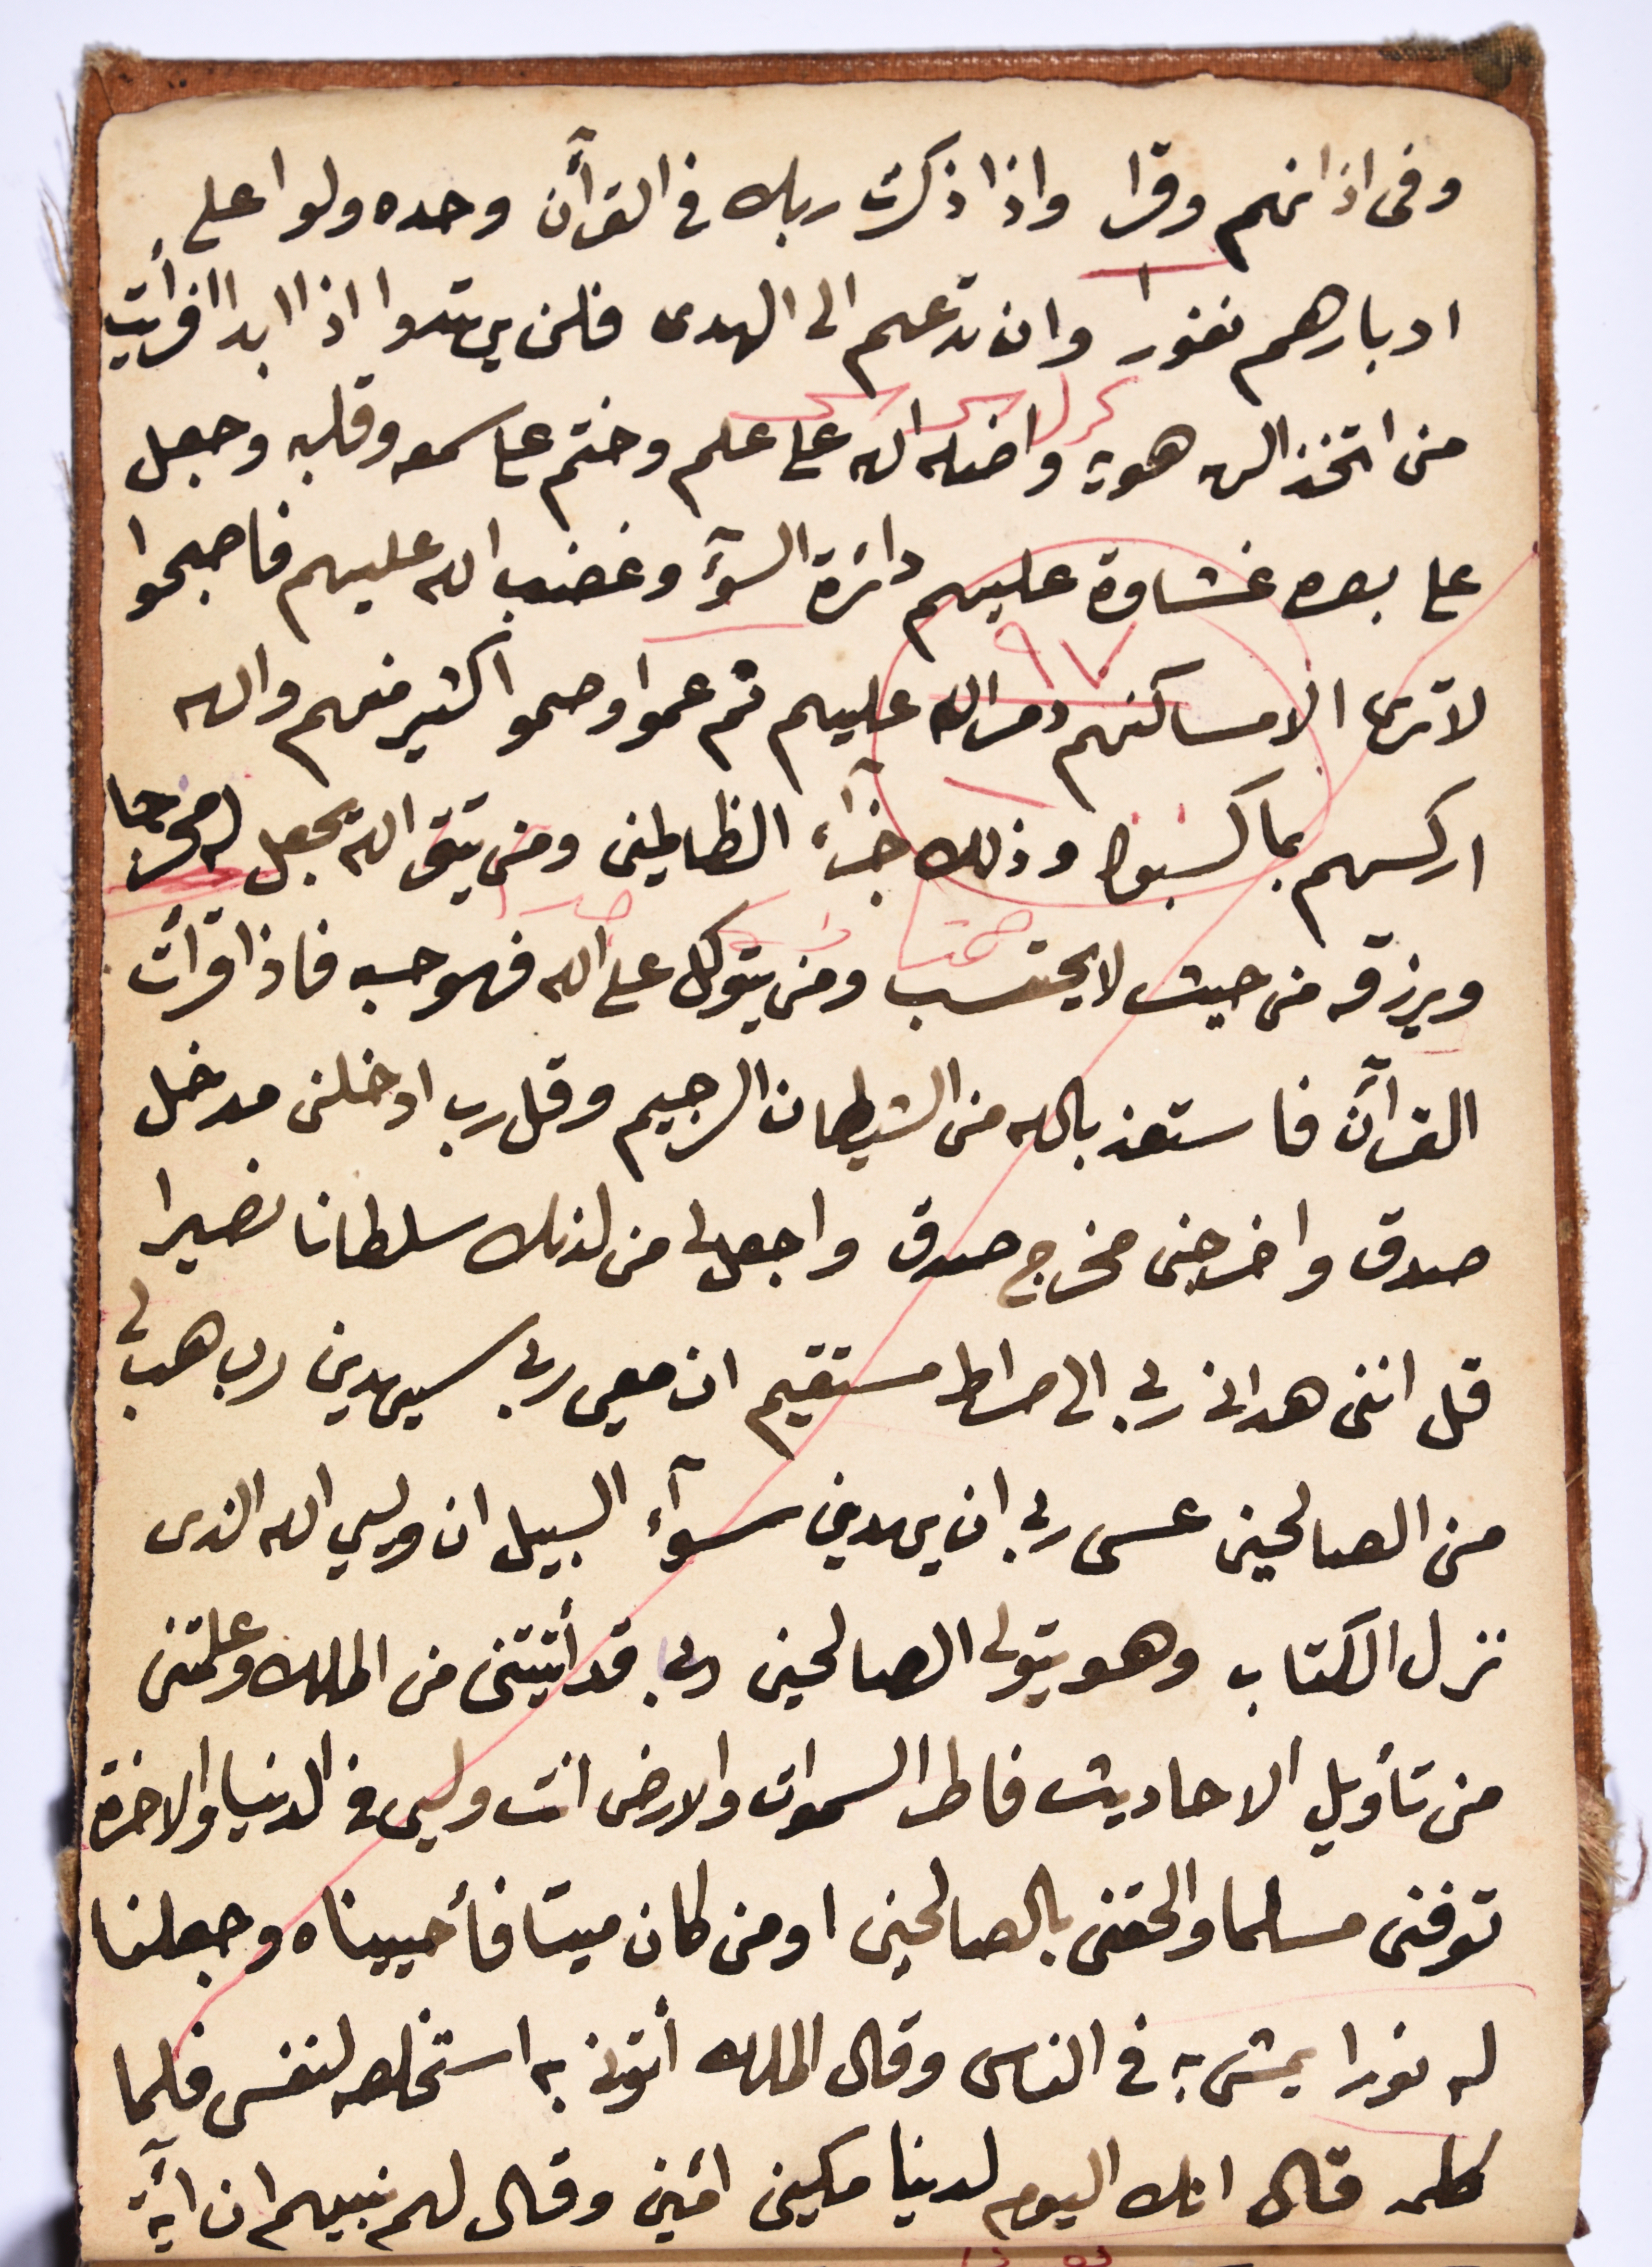 وفى اذانهم وقرا واذا ذكرت ربك فى القرآن وحده ولوا على
ادبارهم نفورا وان تدعهم الى الهدى فلن يهتدوا اذا ابدا افرأيت
من اتخذ الهه هويه واضله الله على علم وختم على سمعه وقلبه وجعل
على بصره غشاوة عليهم دائرة السوء وغضب الله عليهم فاصبحوا
لا ترى الا مساكنهم دمر الله عليهم ثم عموا وصموا كثير منهم والله
اركسهم بما كسبوا وذلك جزآء الظالمين ومن يتق الله يجعل له مخرجا
ويرزقه من حيث لا يحتسب ومن يتوكل على الله فهو حسبه فاذا قرأت
القرآن فاستعذ بالله من الشيطان الرجيم وقل رب ادخلنى مدخل
صدق واخرجنى مخرج صدق واجعل لى من لدنك سلطانا نصيرا
قل اننى هدانى ربى الى صراط مستقيم ان معى ربى سيهدين رب هب لى
من الصالحين عسى ربى ان يهدينى سوآء السبيل ان وليي الله الذى
نزل الكتاب وهو يتولى الصالحين رب قد أتيتنى من الملك وعلمتنى
من تأويل الاحاديث فاطر السموات والارض انت وليى فى الدنيا والاخرة
توفنى مسلما والحقنى بالصالحين اومن كان ميتا فأحييناه وجعلنا
له نورا يمشى به فى الناس وقال الملك أتونى به استخلصه لنفسى فلما
كلمه قال انك اليوم لدينا مكين امين وقال لهم نبيهم ان آية
٩٧